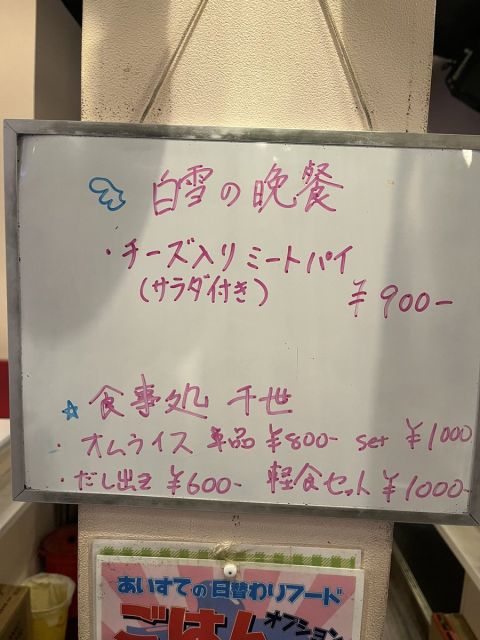 白雪の晩餐
・チーズ入りミートパイ
(サラダ付き)
¥900-
☆食事処 千世
・オムライス 単品 ¥800- set ¥1000
・だし出き ¥600- 軽食セット ¥1000-
あいすての日替わりフード
ごはん
オプション